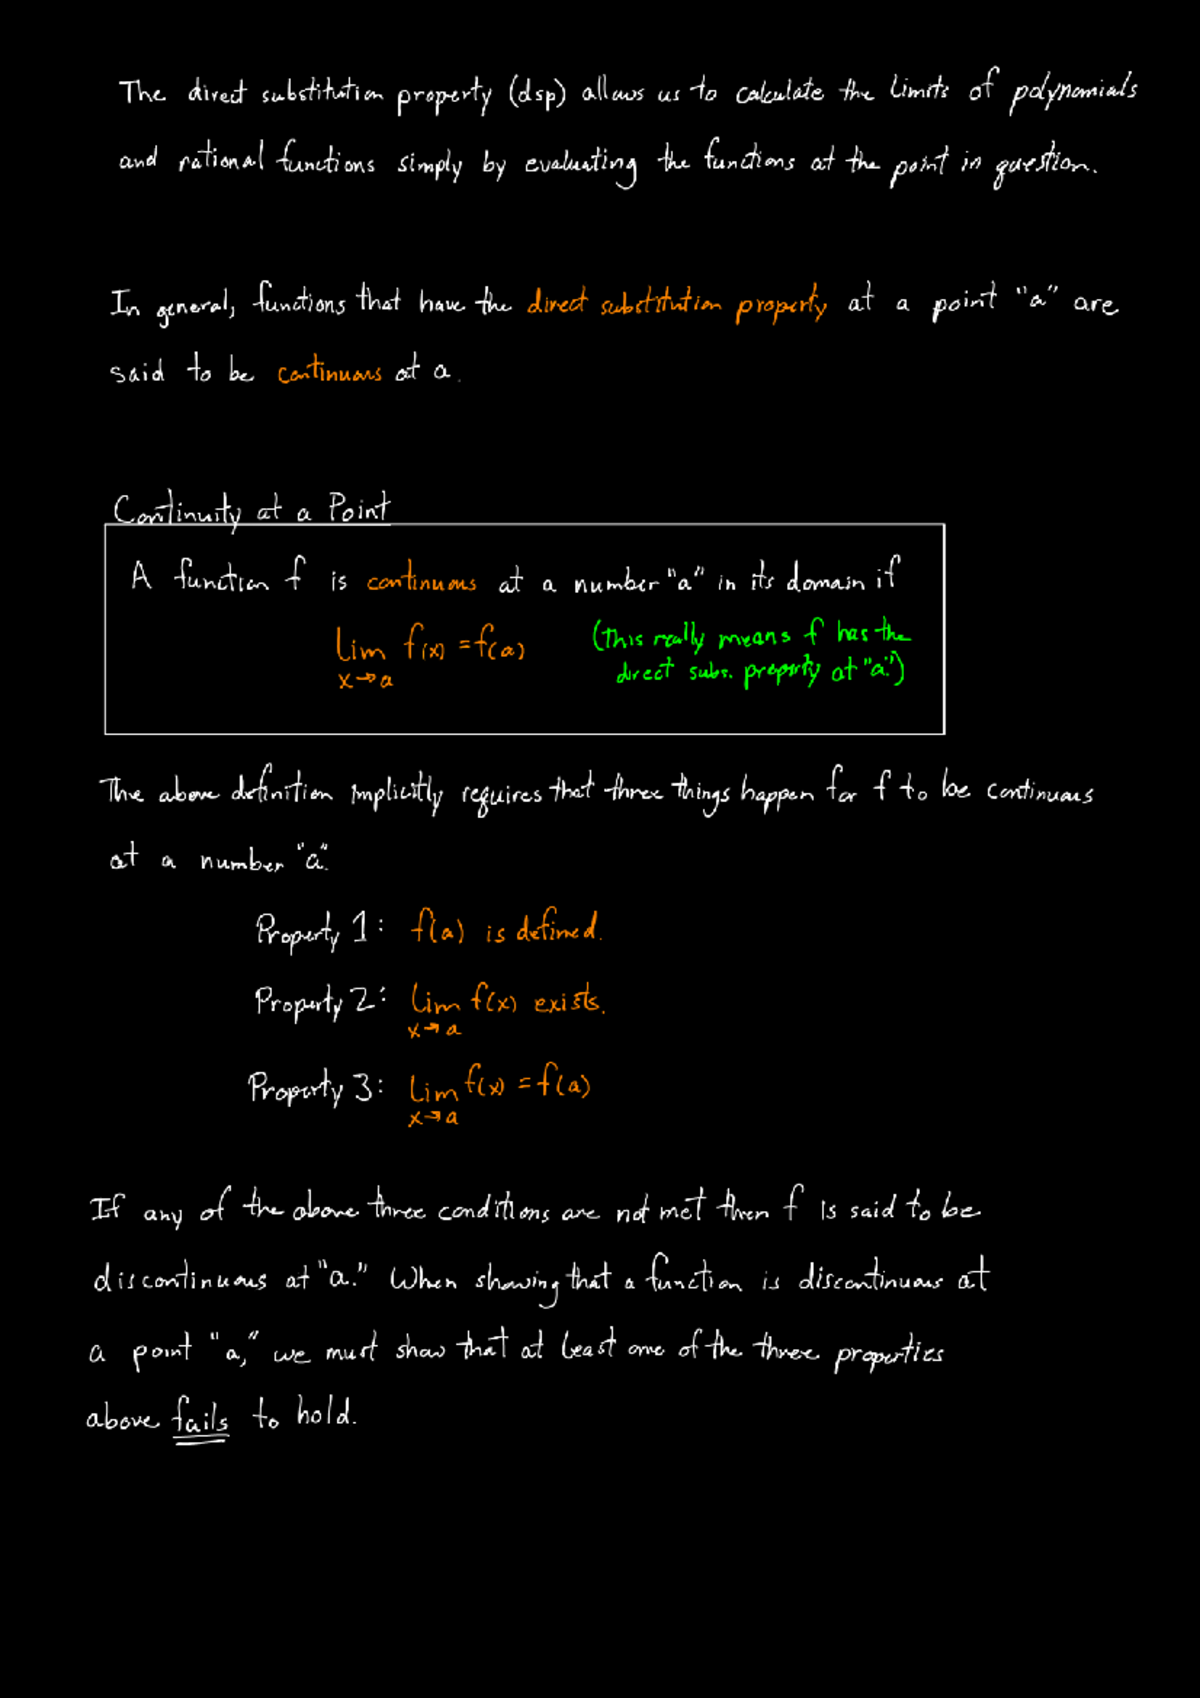 The direct substitution property (dsp) allows us to calculate the limits of polynomials
and rational functions simply by evaluating the functions at the point in question.
In general, functions that have the direct substitution property at a point "a" are
said to be continuous at a.
Continuity at a Point
A function f is continuous at a number "a" in its domain if
lim f(x) = f(a) (This really means f has the
x→a direct subs. property at "a.")
The above definition implicitly requires that three things happen for f to be continuous
at a number "a".
Property 1: f(a) is defined.
Property 2: lim f(x) exists.
x→a
Property 3: lim f(x) = f(a)
x→a
If any of the above three conditions are not met then f is said to be
discontinuous at "a." When showing that a function is discontinuous at
a point "a," we must show that at least one of the three properties
above fails to hold.